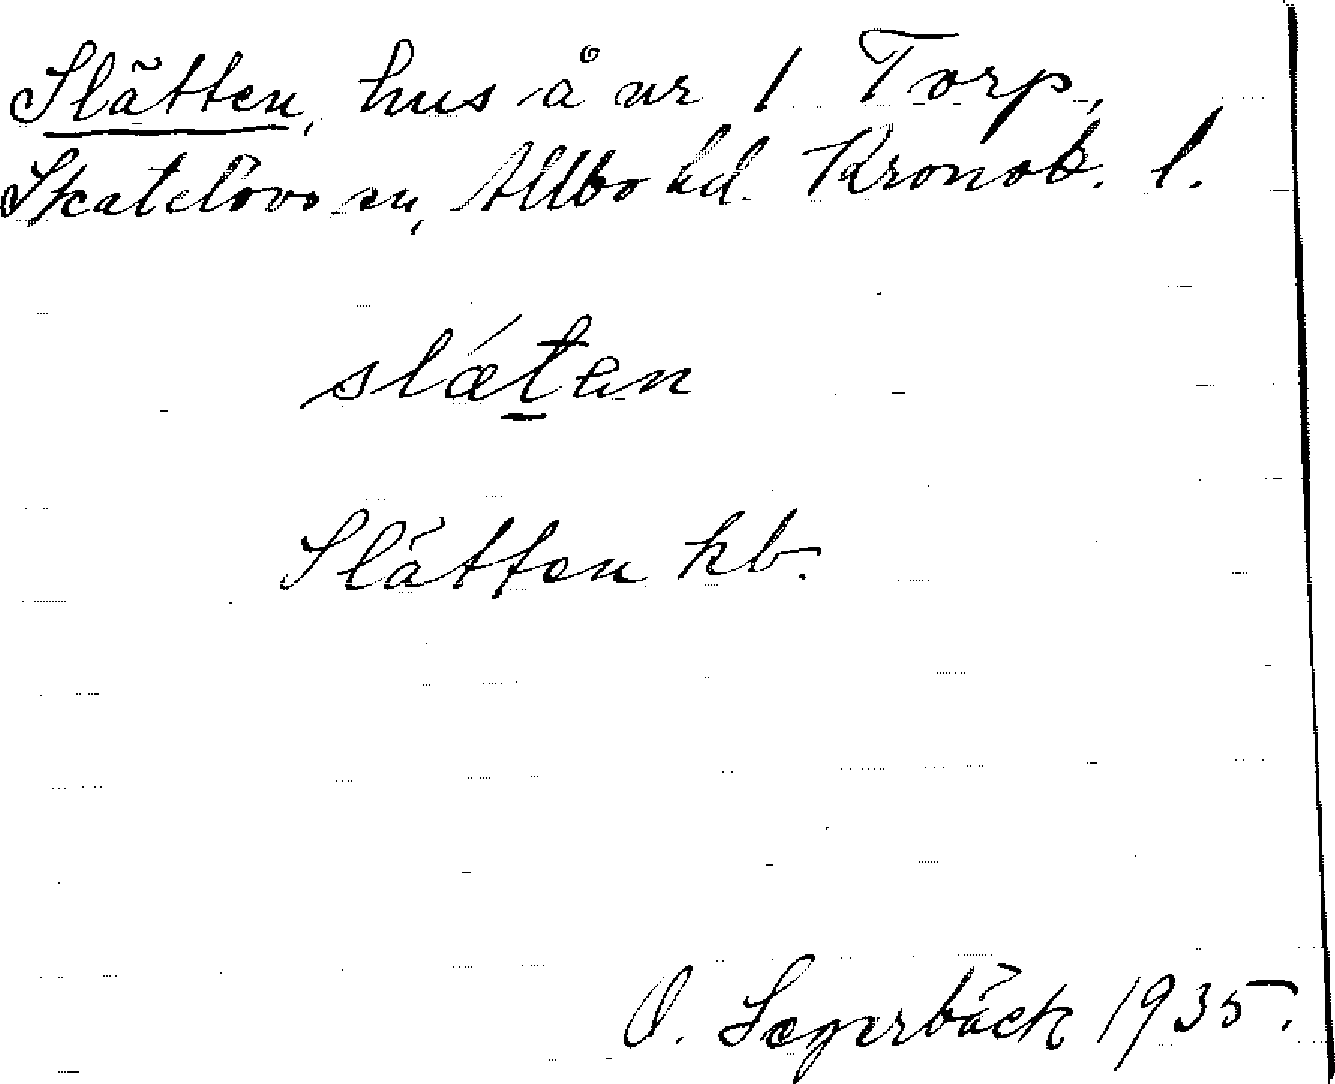 Slätten, hus å nr 1 Torp,
Skatelövs sn, Allbo hd. Kronob. l.
slǽt̲en
Slätten kb.
O. Segerbäck 1935.